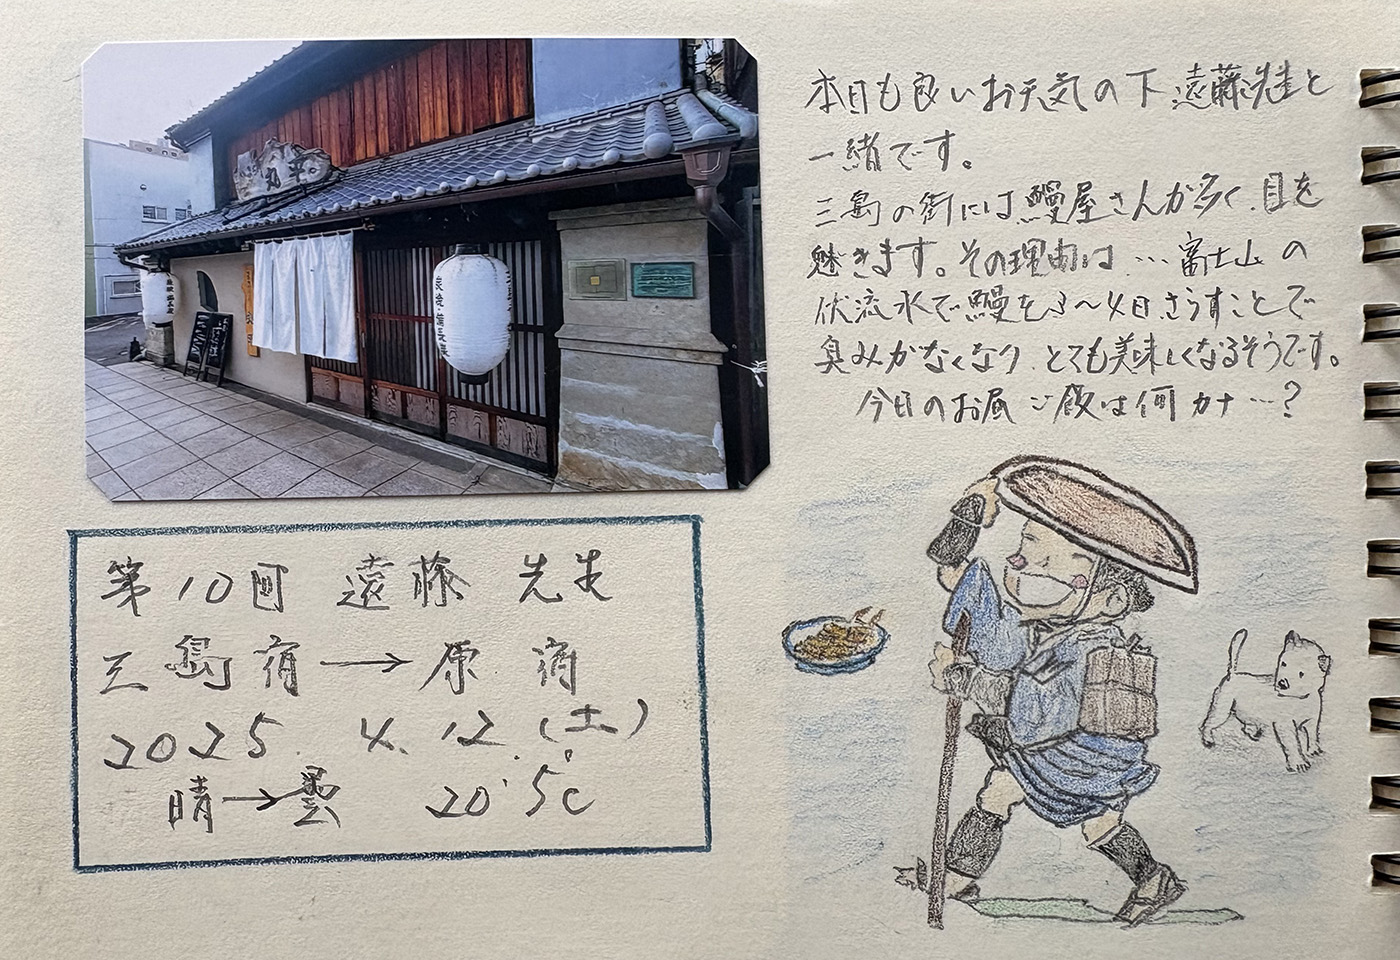 本日も良いお天気の下、遠藤先生と
一緒です。
三島の街には鰻屋さんが多く、目を
魅きます。その理由は…富士山の
伏流水で鰻を3〜4日さらすことで
臭みがなくなり、とても美味しくなるそうです。
今日のお昼ご飯は何カナ…?
第10回 遠藤 先生
三島宿→原宿
2025. 4. 12. (土)
晴→曇 20.5℃